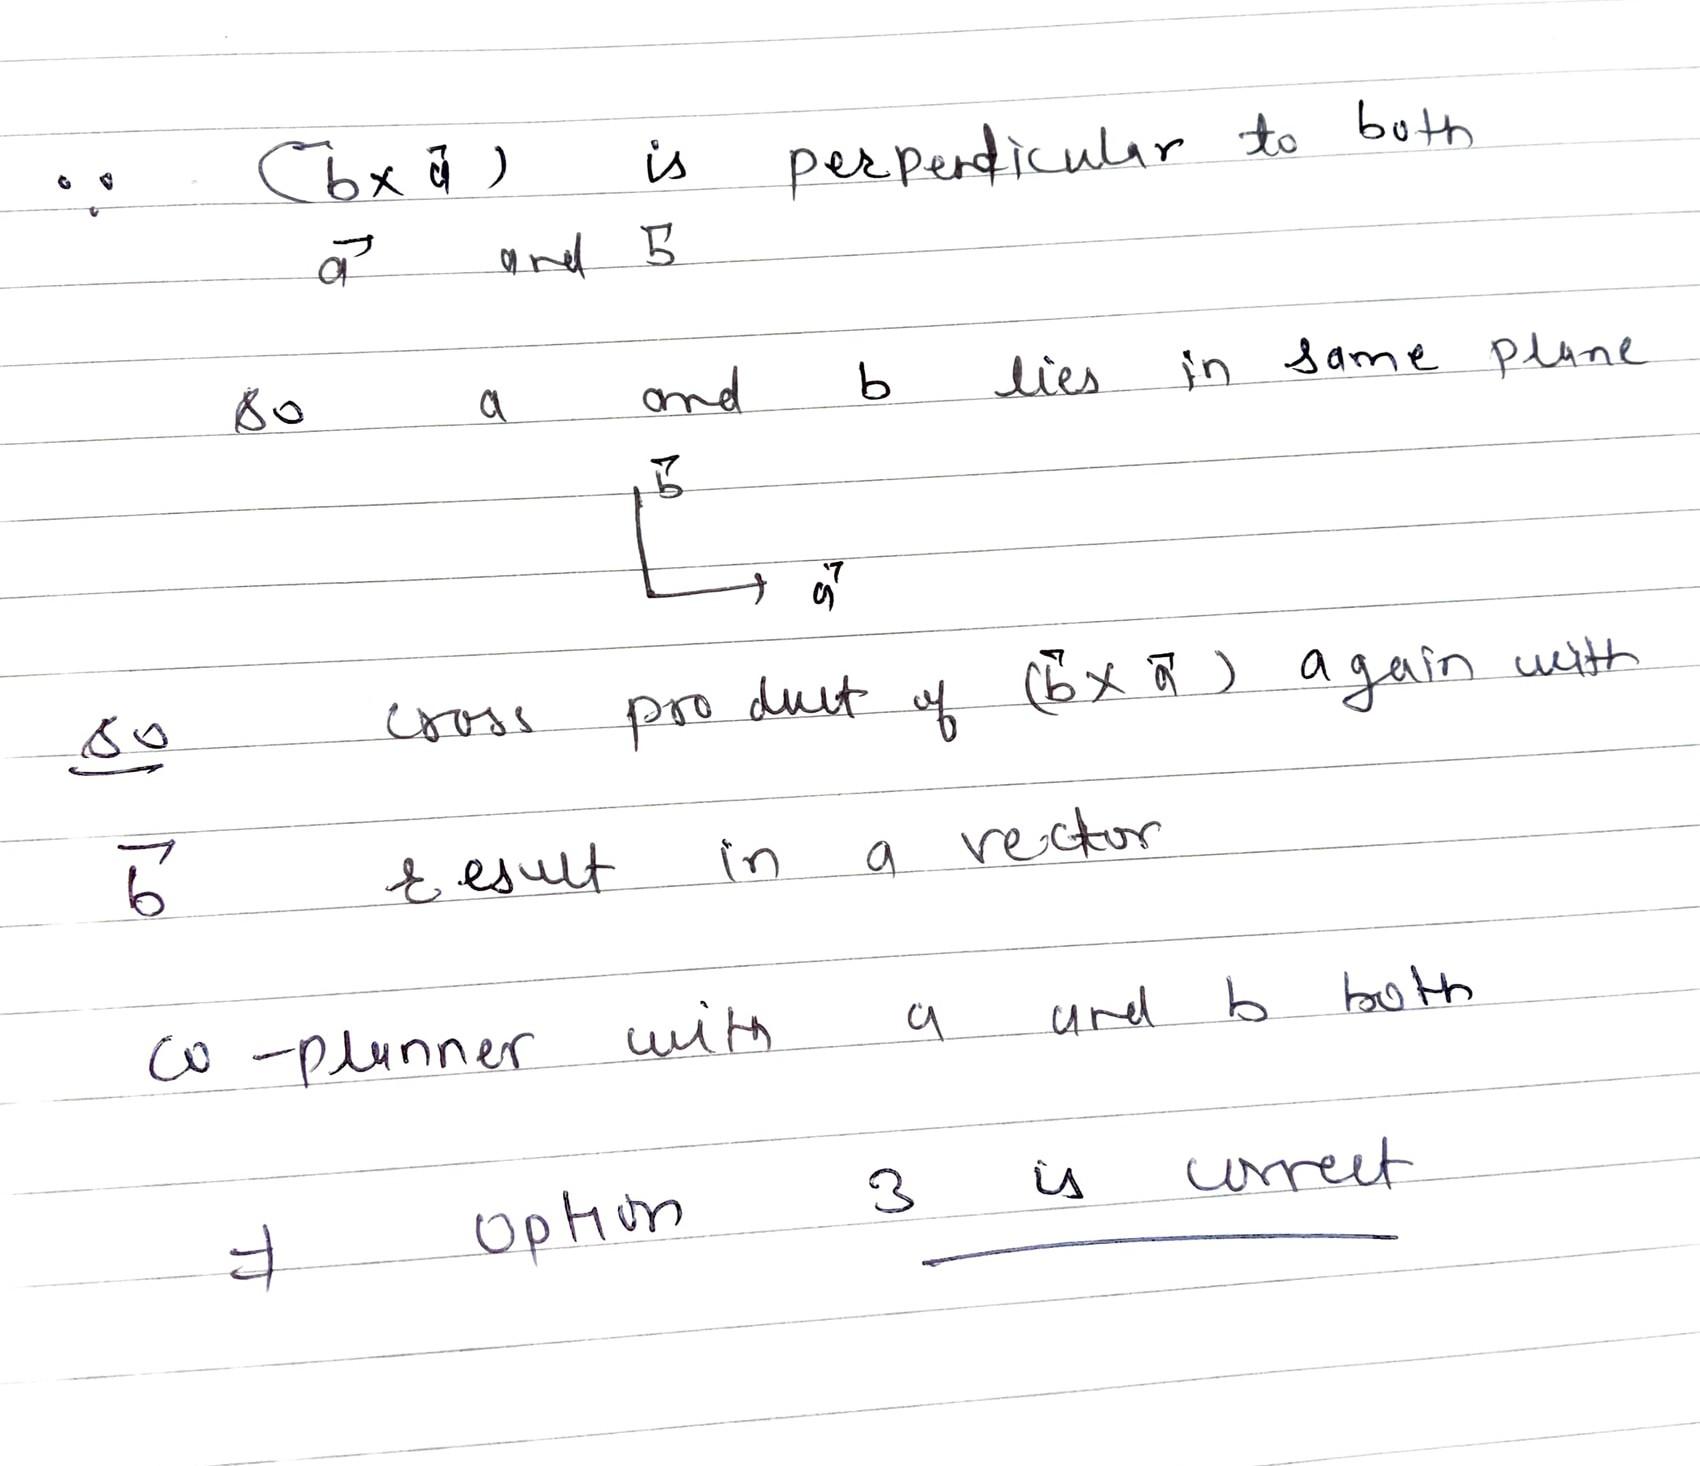 ∵ (b⃗ × a⃗) is perpendicular to both
a⃗ and b⃗
so a and b lies in same plane
b⃗
a⃗
so cross product of (b⃗ × a⃗) again with
b⃗ result in a vector
co-planner with a and b both
⇒ option 3 is correct